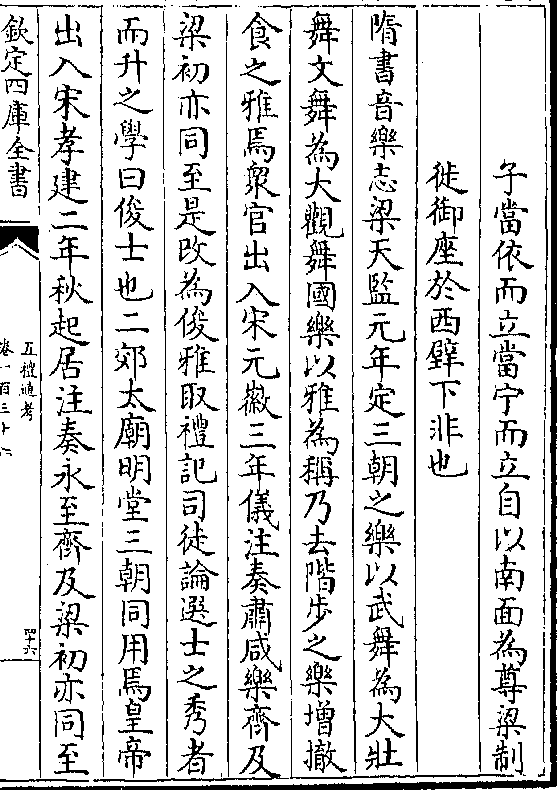 子當依而立當宁而立自以南面為尊梁制
徙御座於西壁下非也
隋書音樂志梁天監元年定三朝之樂以武舞為大壯
舞文舞為大觀舞國樂以雅為稱乃去階步之樂增撤
食之雅焉衆官出入宋元徽三年儀注奏肅咸樂齊及
梁初亦同至是改為俊雅取禮記司徒論選士之秀者
而升之學曰俊士也二郊太廟明堂三朝同用焉皇帝
出入宋孝建二年秋起居注奏永至齊及梁初亦同至
欽定四庫全書
五禮通考
卷一百三十六
四十六